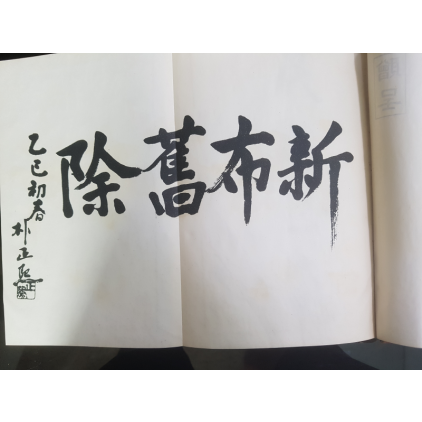 除舊布新
乙巳初春
朴正熙